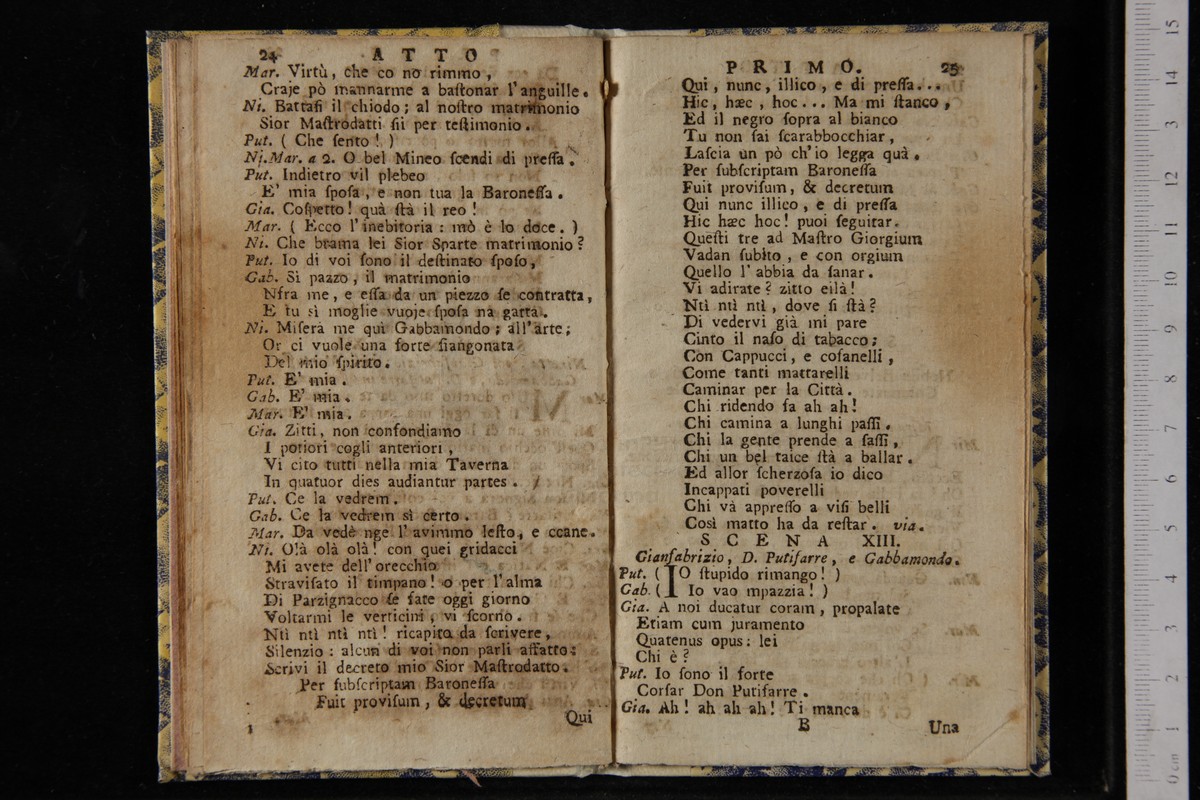 24 ATTO
Mar. Virtù, che co no rimmo,
Craje pò mannarme a baſtonar l'anguille.
Ni. Battaſi il chiodo; al noſtro matrimonio
Sior Maſtrodatti ſii per teſtimonio.
Put. ( Che ſento! )
Ni.Mar. a 2. O bel Mineo ſcendi di preſſa.
Put. Indietro vil plebeo
E' mia ſpoſa, e non tua la Baroneſſa.
Gia. Coſpetto! quà ſtà il reo!
Mar. ( Ecco l'inebitoria: mò è lo doce. )
Ni. Che brama lei Sior Sparte matrimonio?
Put. Io di voi ſono il deſtinato ſpoſo,
Gab. Sì pazzo, il matrimonio
Nfra me, e eſſa da un piezzo ſe contratta,
E tu sì moglie vuoje ſpoſa na gatta.
Ni. Miſera me qui Gabbamondo; all'arte;
Or ci vuole una forte ſiangonata
Del mio ſpirito.
Put. E' mia.
Gab. E' mia.
Mar. E' mia.
Gia. Zitti, non confondiamo
I potiori cogli anteriori,
Vi cito tutti nella mia Taverna
In quatuor dies audiantur partes.
Put. Ce la vedrem.
Gab. Ce la vedrem sì certo.
Mar. Da vedè nge l'avimmo leſto, e ccane.
Ni. Olà olà olà! con quei gridacci
Mi avete dell'orecchio
Straviſato il timpano! o per l'alma
Di Parzignacco ſe fate oggi giorno
Voltarmi le verticini, vi ſcorno.
Ntì ntì ntì ntì! ricapito da ſcrivere,
Silenzio: alcun di voi non parli affatto:
Scrivi il decreto mio Sior Maſtrodatto.
Per ſubſcriptam Baroneſſa
Fuit proviſum, & decretum
Qui
PRIMO. 25
Qui, nunc, illico, e di preſſa...
Hic, hæc, hoc... Ma mi ſtanco,
Ed il negro ſopra al bianco
Tu non ſai ſcarabbocchiar,
Laſcia un pò ch'io legga quà.
Per ſubſcriptam Baroneſſa
Fuit proviſum, & decretum
Qui nunc illico, e di preſſa
Hic hæc hoc! puoi ſeguitar.
Queſti tre ad Maſtro Giorgium
Vadan ſubito, e con orgium
Quello l'abbia da ſanar.
Vi adirate? zitto eilà!
Ntì ntì ntì, dove ſi ſtà?
Di vedervi già mi pare
Cinto il naſo di tabacco;
Con Cappucci, e coſanelli,
Come tanti mattarelli
Caminar per la Città.
Chi ridendo fa ah ah!
Chi camina a lunghi paſſi.
Chi la gente prende a ſaſſi,
Chi un bel taice ſtà a ballar.
Ed allor ſcherzoſa io dico
Incappati poverelli
Chi và appreſſo a viſi belli
Così matto ha da reſtar. via.
SCENA XIII.
Gianfabrizio, D. Putifarre, e Gabbamondo.
Put. ( IO ſtupido rimango! )
Gab. ( Io vao mpazzia! )
Gia. A noi ducatur coram, propalate
Etiam cum juramento
Quatenus opus: lei
Chi è?
Put. Io ſono il forte
Corſar Don Putifarre.
Gia. Ah! ah ah ah! Ti manca
B Una